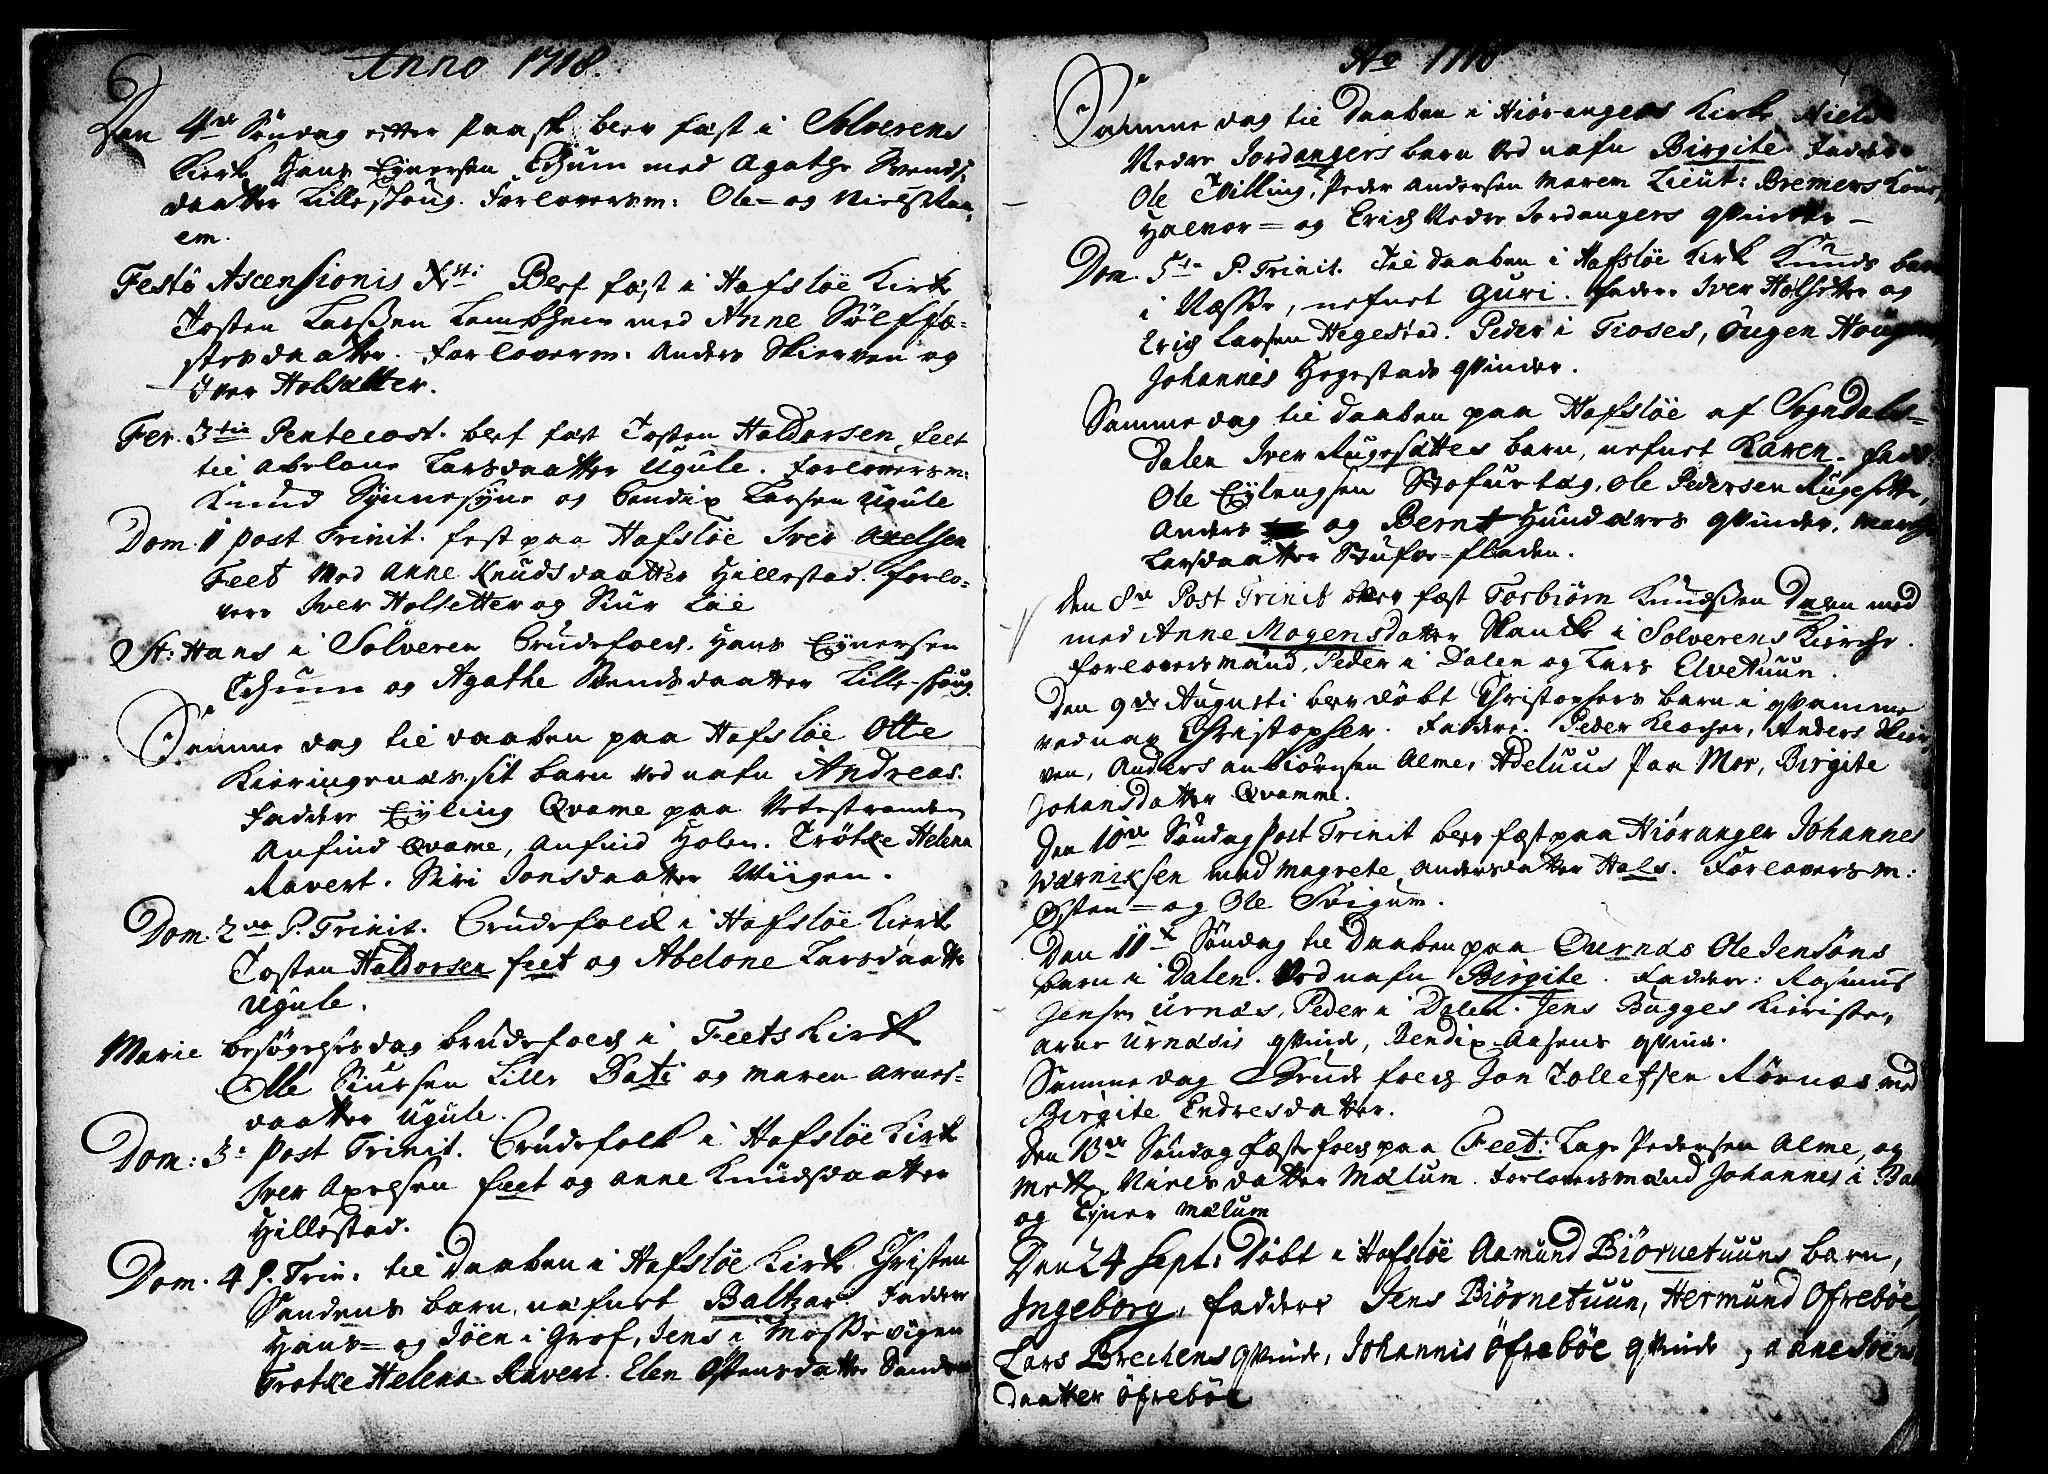 Anno 1718.
Den 4de Søndag efter Paask blev fæst i Solverens
Kirk Hans Eÿnersen Thum med Agathe Svends
daatter Lille Houg. Forloversm: Ole = og Niels
em.
Festo Ascensionis Xsti Blef fæst i Hafsløe Kirk
Josten Larssen Lambheim med Anne Sølffæ=
stersdaatter. Forloverm: Anders Skierven og
Iver Holsætter.
Fer. 3tia Pentecost. blef fæst Josten Haldorsen feet
til Abelone Larsdaatter Ugule. Forloversm:
Knud Sÿnnesÿne og Bendix Larsen Ugule
Dom. 1 post Trinit. fæst paa Hafsløe Iver Axelsen
Feet med Anne Knudsdaatter Hillestad. Forlo-
vere Iver Holsetter og Siur Løe
St: Hans i Solveren Brudefolck. Hans Eÿnersen
Thum og Agathe Svendsdaatter Lille-Houg
Samme dag til daaben paa Hafsløe Otte
Kieringenæs sit barn ved nafn Andreas.
Faddere Eÿling Qvame paa Vetestranden
Anfind Qvame, Anfind Holen. Trøtke Helena
Ravert. Siri Jonsdaatter Wiigen.
Dom. 2da P. Trinit. Brudefolck i Hafsløe Kirk
Josten Haldorsen feet og Abelone Larsdaatter
Ugule.
Marie besøgelsis dag brudefolck i Feets Kirk
Olle Siursen Lille Bati og Maren Arnes-
daatter Ugule.
Dom: 3: Post Trinit. Brudefolck i Hafsløe Kirk
Iver Axelsen feet og Anne Knudsdaatter
Hillestad.
Dom. 4 P. Trin: til Daaben i Hafsløe Kirk Christen
Sandens barn, næfnet Baltzar. Faddere
Hans = og Jøen i Grof, Jens i Mosserigen
Trotke Helena Ravert. Elen Østensdatter Sanden
Ao 1718
Samme dag til Daaben i Hiørangers Kirk Niels
Nedre Jordangers barn ved nafn Birgite. Faddere
Ole Tvilling, Peder Andersen Maren Lieut: Bremers Kone,
Halvor = og Erich Nedre Jordangers qvinder
Dom. 5te P. Trinit. Til daaben i Hafsløe Kirk Knuds barn
i Næsse, nefnet Guri. Faddere Iver Holsetter og
Erich Larsen Hegestad. Peder i Tioses, Øugen Hougens
Johannis Hegestads qvinder.
Samme dag til daaben paa Hafsløe af Sogndals-
Dalen Iver Rugesættes barn, nefnet Karen. Fadd:
Ole Eÿlengsen Stofurtag, Ole Pedersen Rugesette,
Anders og Bernt Hundæres qvinder,
Larsdaatter Stufre-fladen.
Den 8de Post Trinit blev fæst Torbiørn Knudssen Dæen med
med Anne Mogensdatter Skanck i Solverens Kirche.
Forloversmænd, Peder i Dalen og Lars Elvetuun.
Den 9de Augusti blev døbt Christophers barn i Qvamme
ved nav Christopher. Faddere. Peder Klocker, Anders Skier,
ven, Anders Anbiørnsen Alme, Adeluus Paa Mor, Birgite
Johansdatter Qvamme.
Den 10de Søndag Post Trinit blev fæst paa Hiøranger Johannes
Wærniksen med Magrete Andersdatter Hals. Forloversm:
Østen = og Ole Søigum.
Den 11te Søndag til Daaben paa Ournæs Ole Jensøns
barn i Dalen. Ved nafn Birgite. Faddere: Rasmus
Jensen Urnæs, Peder i Dalen. Jens Bugges Kieriste,
Arne Urnæsis qvinde, Bendix Aasens qvinde.
Samme dag Brudefolck Jon Tollefsen Rørnæs med
Birgite Endresdatter.
Den 13de Søndag Fæstefolck paa Feet: Lage Pedersen Alme, og
Mette Nielsdatter Mælum. Forloversmænd Johannes i
og Eÿner Mælum
Den 24 Sept: Døbt i Hafsløe Aamund Biørnetuuns barn,
Ingeborg, faddere Jens Biørnetuun, Hermund Ofrebøe,
Lars Brechens qvinde, Johannis Øfrebøe qvinde, Anne Jøens
daatter Øfrebøe